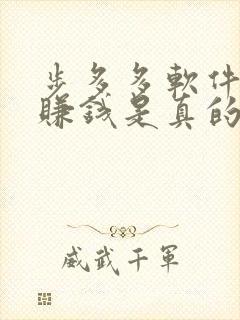 步多多軟件
賺錢是真的
威武千軍